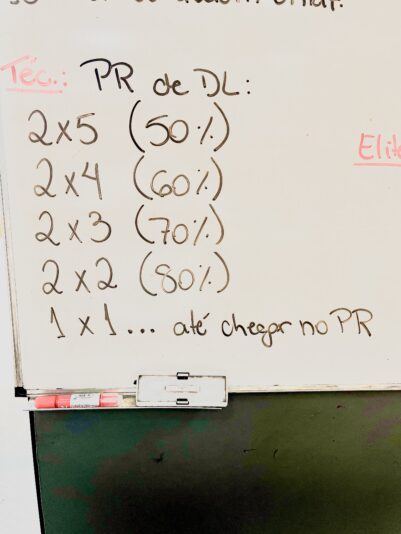 de abdominal.
Téc.: PR de DL:
2x5 (50%)
Elite
2x4 (60%)
2x3 (70%)
2x2 (80%)
1x1... até chegar no PR